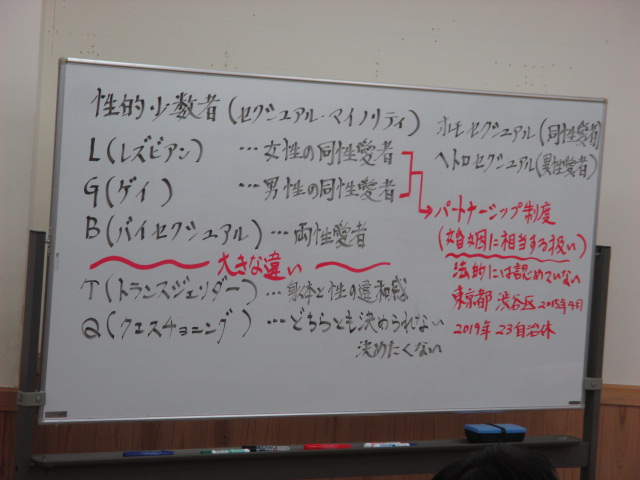 性的少数者(セクシュアル・マイノリティ)
L(レズビアン) …女性の同性愛者
G(ゲイ) …男性の同性愛者
B(バイセクシュアル)…両性愛者
大きな違い
T(トランスジェンダー)…身体と性の違和感
Q(クエスチョニング)…どちらとも決められない
決めたくない
ホモセクシュアル(同性愛者)
ヘトロセクシュアル(異性愛者)
→パートナーシップ制度
(婚姻に相当する扱い)
法的には認めていない
東京都 渋谷区 2015年4月
2019年 23自治体